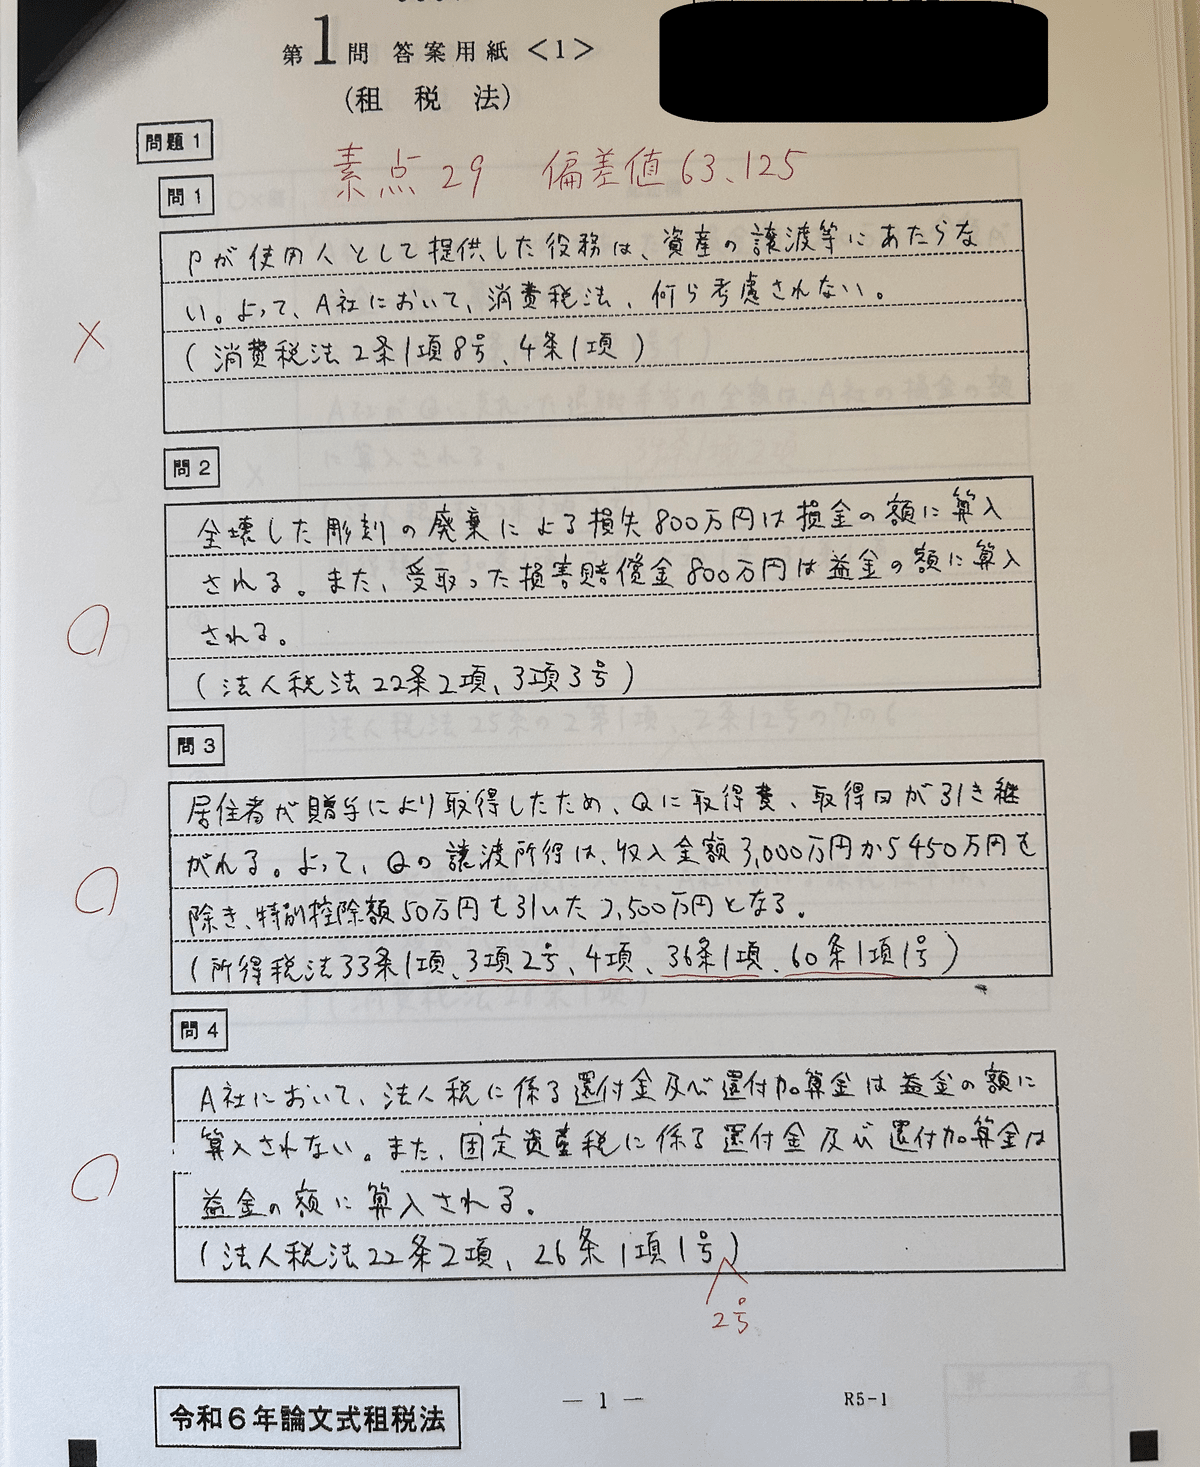 第1問 答案用紙<1>
(租 税 法)
問題1
素点29 偏差値63.125
問1
Pが使用人として提供した役務は、資産の譲渡等にあたらな
い。よって、A社において、消費税法、何ら考慮されない。
(消費税法2条1項8号、4条1項)
×
問2
全壊した彫刻の廃棄による損失800万円は損金の額に算入
される。また、受取った損害賠償金800万円は益金の額に算入
される。
(法人税法22条2項、3項3号)
問3
居住者が贈与により取得したため、Qに取得費、取得日が引き継
がれる。よって、Qの譲渡所得は、収入金額3,000万円から450万円を
除き、特別控除額50万円を引いた2,500万円となる。
(所得税法33条1項、3項2号、4項、36条1項、60条1項1号)
問4
A社において、法人税に係る還付金及び還付加算金は益金の額に
算入されない。また、固定資産税に係る還付金及び還付加算金は
益金の額に算入される。
(法人税法22条2項、26条1項1号)
2号
令和6年論文式租税法
— 1 —
R5-1